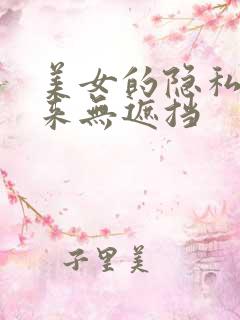 美女的隐私
未無遮挡
子里美